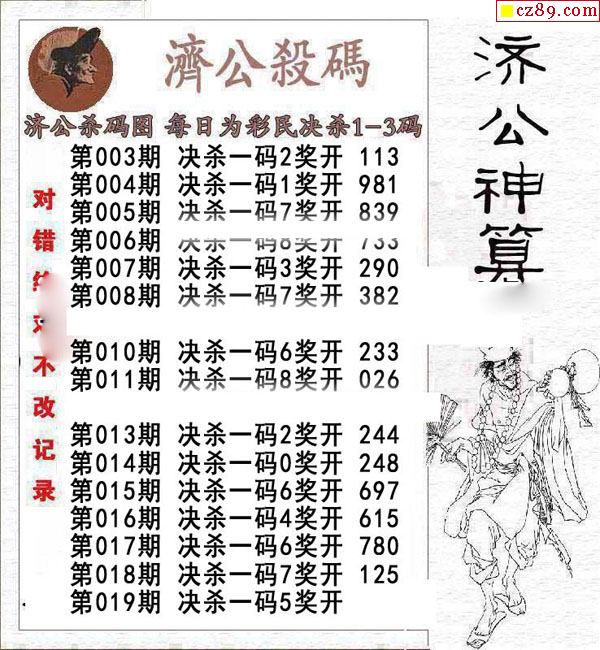 cz89.com
濟公殺碼
济公杀码图 每日为彩民决杀1-3码
第003期 决杀一码2奖开 113
第004期 决杀一码1奖开 981
第005期 决杀一码7奖开 839
第006期 决杀一码8奖开 733
第007期 决杀一码3奖开 290
第008期 决杀一码7奖开 382
第010期 决杀一码6奖开 233
第011期 决杀一码8奖开 026
第013期 决杀一码2奖开 244
第014期 决杀一码0奖开 248
第015期 决杀一码6奖开 697
第016期 决杀一码4奖开 615
第017期 决杀一码6奖开 780
第018期 决杀一码7奖开 125
第019期 决杀一码5奖开
对错
不改记录
济公神算